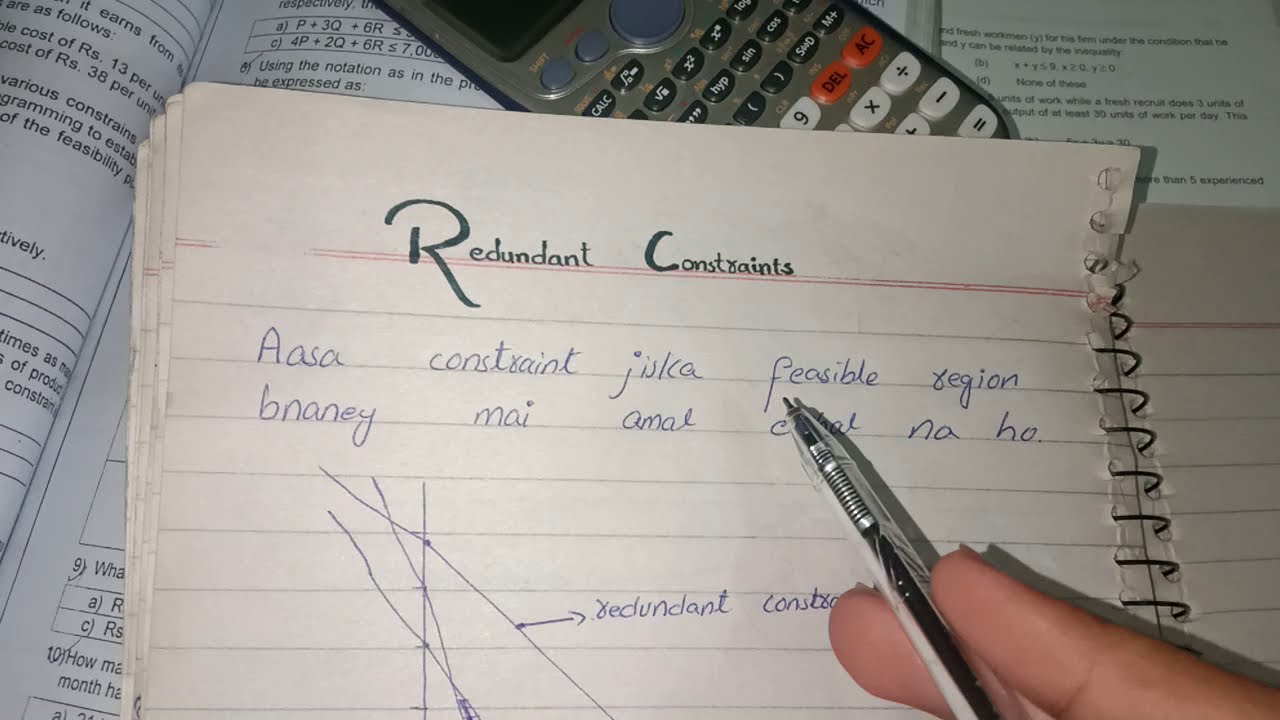 it earns from
are as follows:
ble cost of Rs. 13 per un
cost of Rs. 38 per uni
various constrains
gramming to estab
of the feasibility p
tively.
times as
of produc
constrain
9) Wha
a) R
c) Rs
10) How ma
month ha
respectively,
a) P + 3Q + 6R ≤
c) 4P + 2Q + 6R ≤ 7,00
6) Using the notation as in the pr
be expressed as:
SHIFT
CALC
hyp
sin
cos
log
S⇔D
M+
DEL
AC
9
÷
×
−
+
=
and fresh workmen (y) for his firm under the condition that he
and y can be related by the inequality
(b) x + y ≤ 9, x ≥ 0, y ≥ 0
(d) None of these
units of work while a fresh recruit does 3 units of
output of at least 30 units of work per day. This
more than 5 experienced
Redundant Constraints
Aasa constraint jiska feasible region
bnaney mai amal na ho.
redundant constra